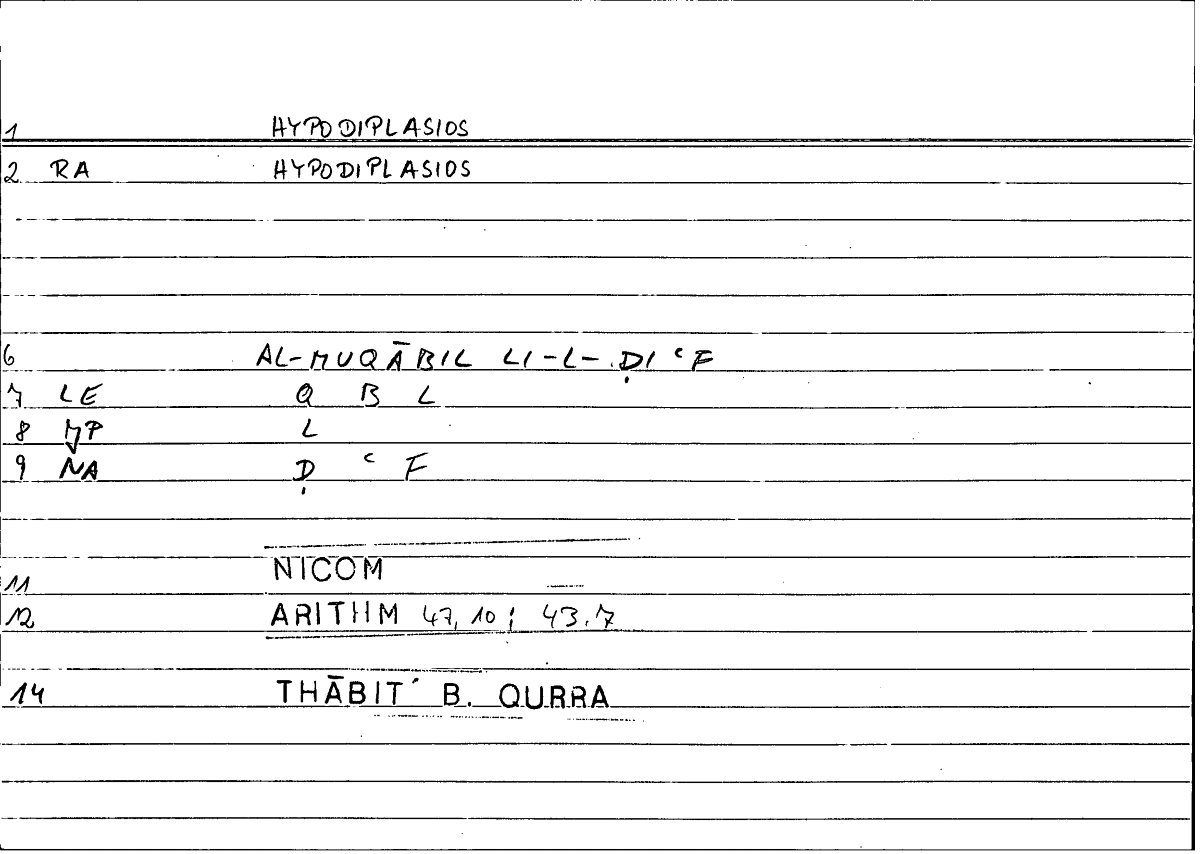 1 HYPODIPLASIOS
2 RA HYPODIPLASIOS
6 AL-MUQĀBIL LI-L-ḌIʿF
7 LE Q B L
8 MP L
9 NA Ḍ ʿ F
11 NICOM
12 ARITHM 47,10; 43.7
14 THĀBIT B. QURRA